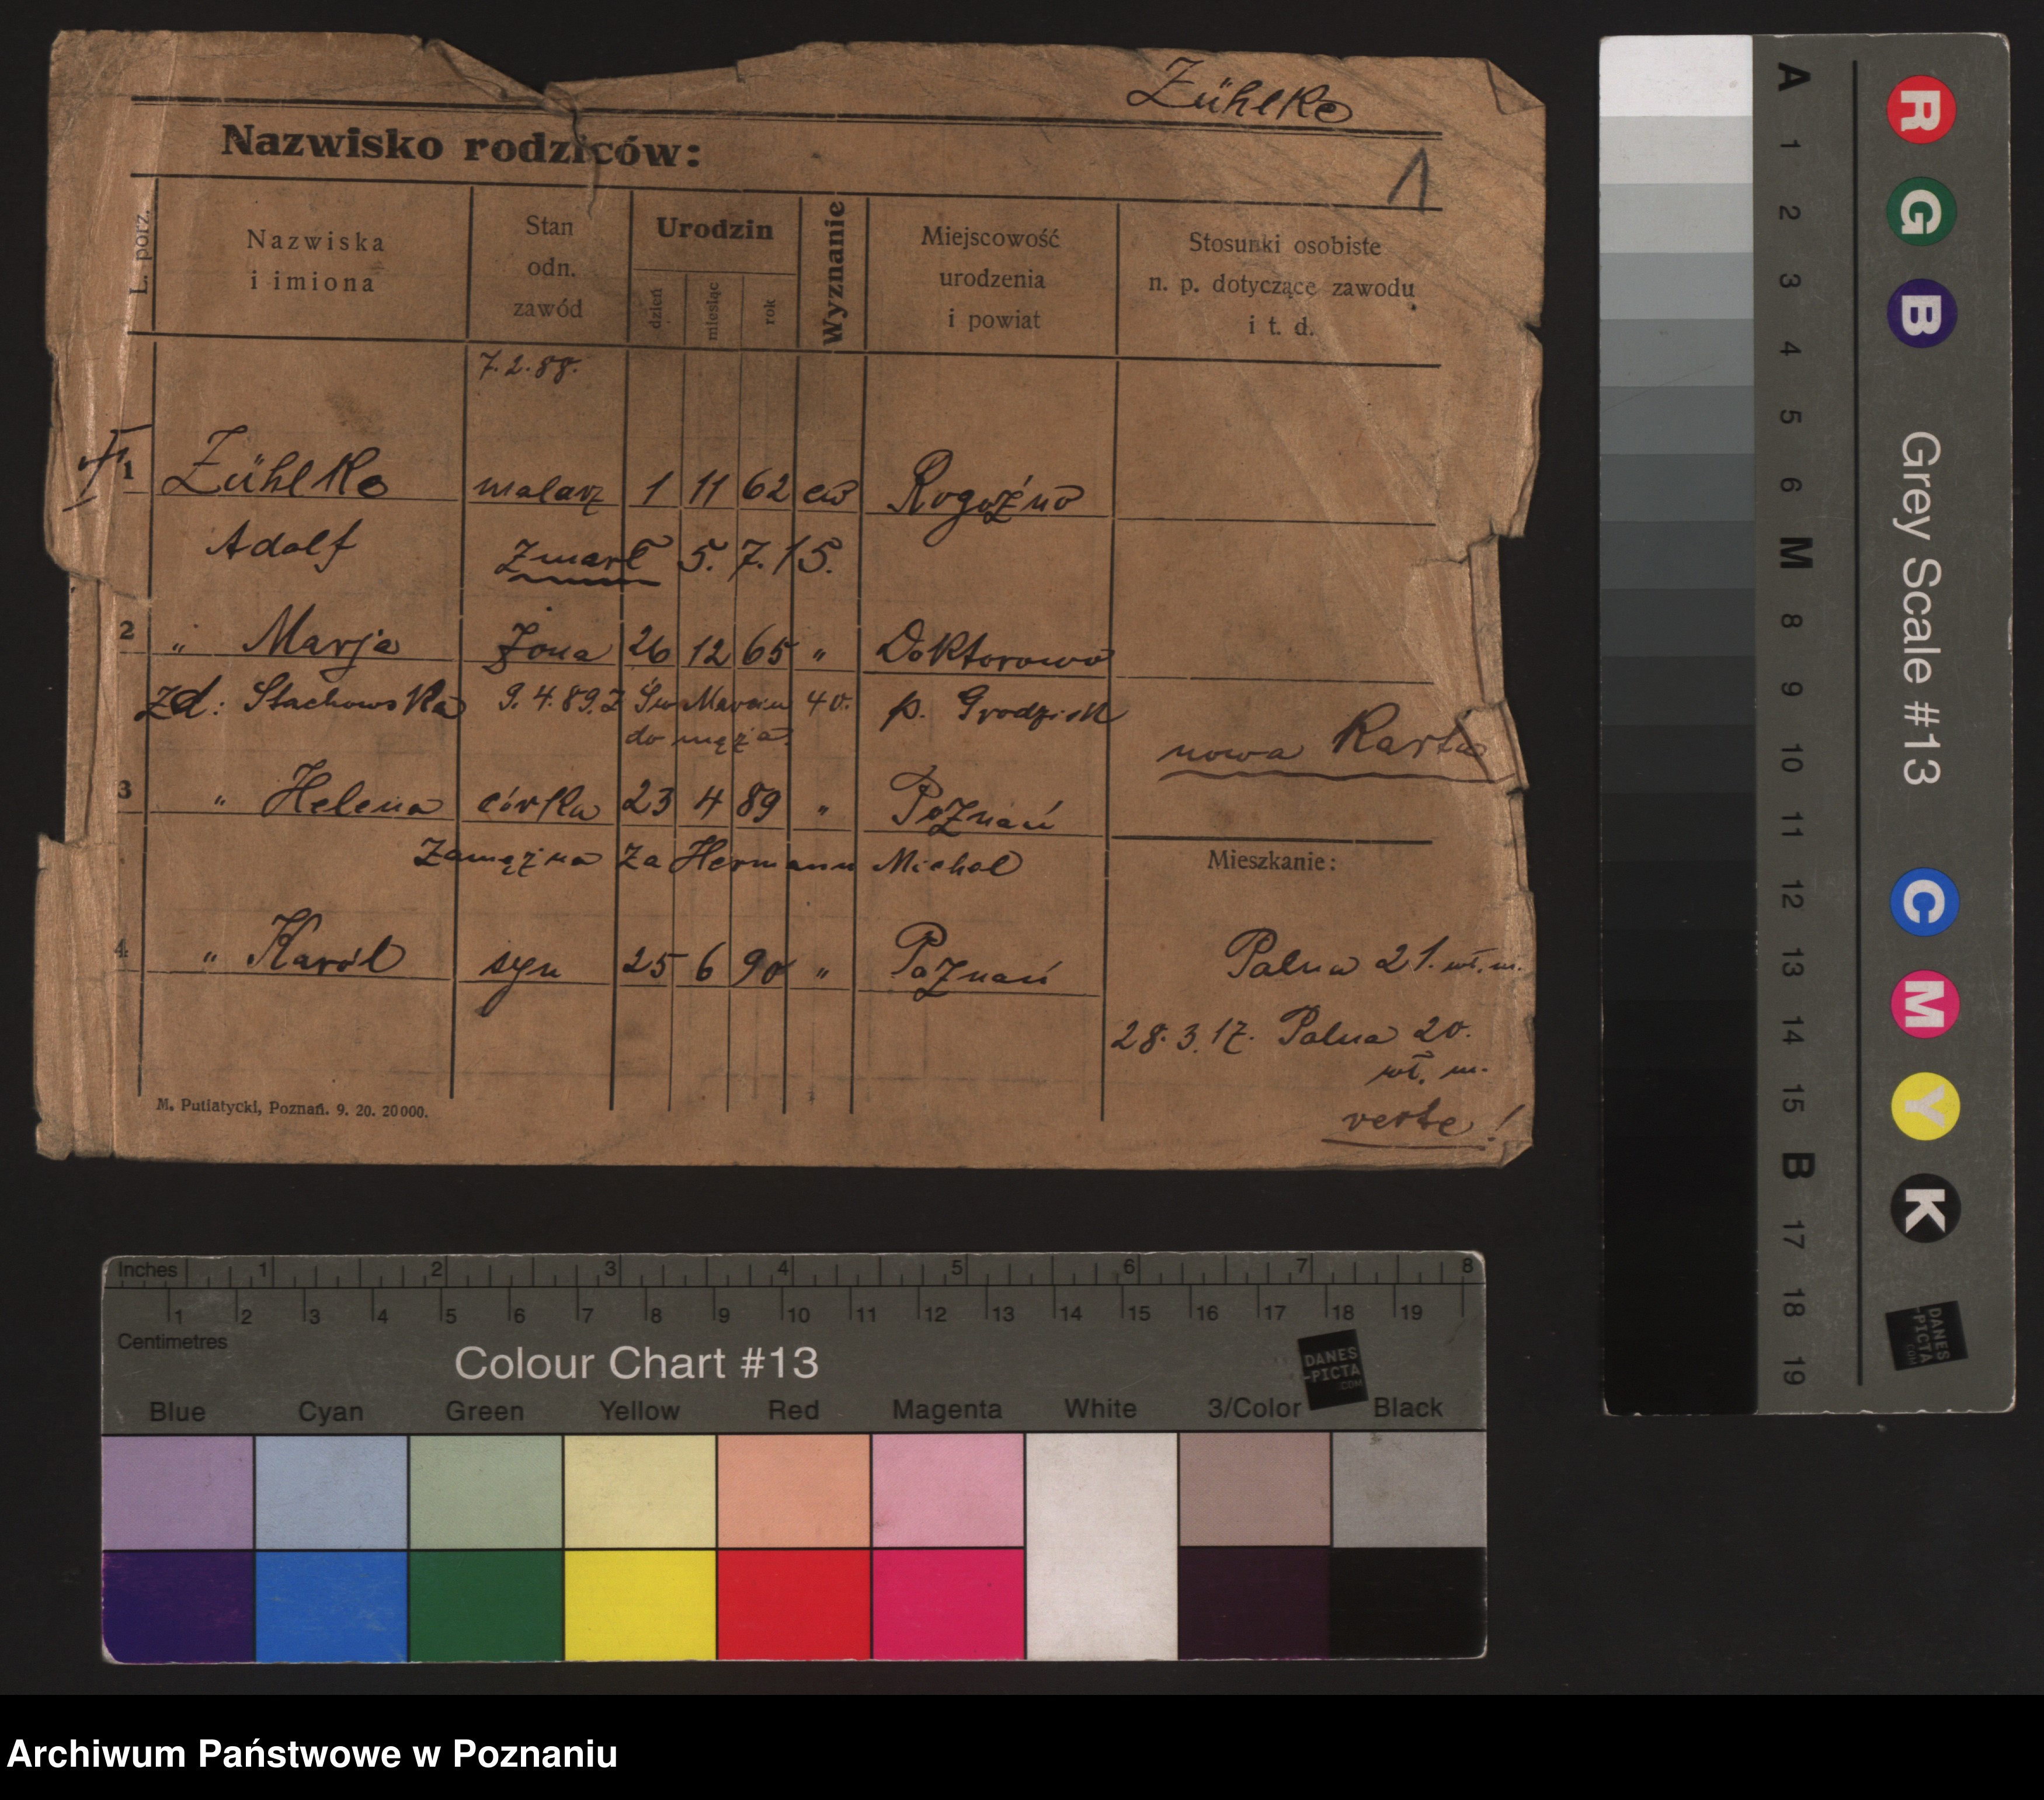 Zühlke
Nazwisko rodziców:
1
L. porz.
Nazwiska
i imiona
Stan
odn.
zawód
Urodzin
dzień
miesiąc
rok
Wyznanie
Miejscowość
urodzenia
i powiat
Stosunki osobiste
n. p. dotyczące zawodu
i t. d.
7. 2. 88.
1 Zühlke malarz 1 11 62 ew Rogoźno
Adolf zmarł 5. 7. 15.
2 " Marja żona 26 12 65 " Doktorowo
zd: Stachowska 9. 4. 89. z Św Marcin 40. p. Grodzisk
do męża.
nowa Karta
3 " Helena córka 23 4 89 " Poznań
zamężna za Hermann Michel
Mieszkanie:
4. " Karól syn 25 6 90 " Poznań
Palna 21. wł. m.
28. 3. 17. Palna 20.
wł. m.
verte!
M. Putiatycki, Poznań. 9. 20. 20000.
A 1 2 3 4 5 6 M 8 9 10 11 12 13 14 15 B 17 18 19
R G B Grey Scale #13 C M Y K
DANES
-PICTA
.COM
Inches 1 2 3 4 5 6 7 8
1 2 3 4 5 6 7 8 9 10 11 12 13 14 15 16 17 18 19
Centimetres
Colour Chart #13
DANES
-PICTA
.COM
Blue Cyan Green Yellow Red Magenta White 3/Color Black
Archiwum Państwowe w Poznaniu